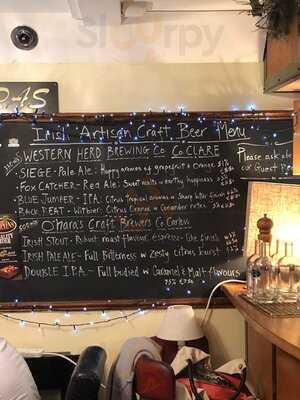 Sluurpy
Irish Artisan Craft Beer Menu
WESTERN HERD BREWING Co. Co CLARE
Please ask
SIEGE - Pale Ale: Hoppy aromas of grapefruit & orange 5%
FOX CATCHER - Red Ale: Sweet malts w earthy hoppiness
BLUE JUMPER - I.P.A: Citrus Tropical aromas w Sharp bitter
BACK BEAT - Witbier: Citrus Orange w Coriander notes
O'hara's Craft Brewers Co. Carlow
IRISH STOUT - Robust roast flavour, espresso-like finish
IRISH PALE ALE - Full Bitterness w Zesty citrus burst
DOUBLE I.P.A. - Full bodied w Caramel & Malt flavours